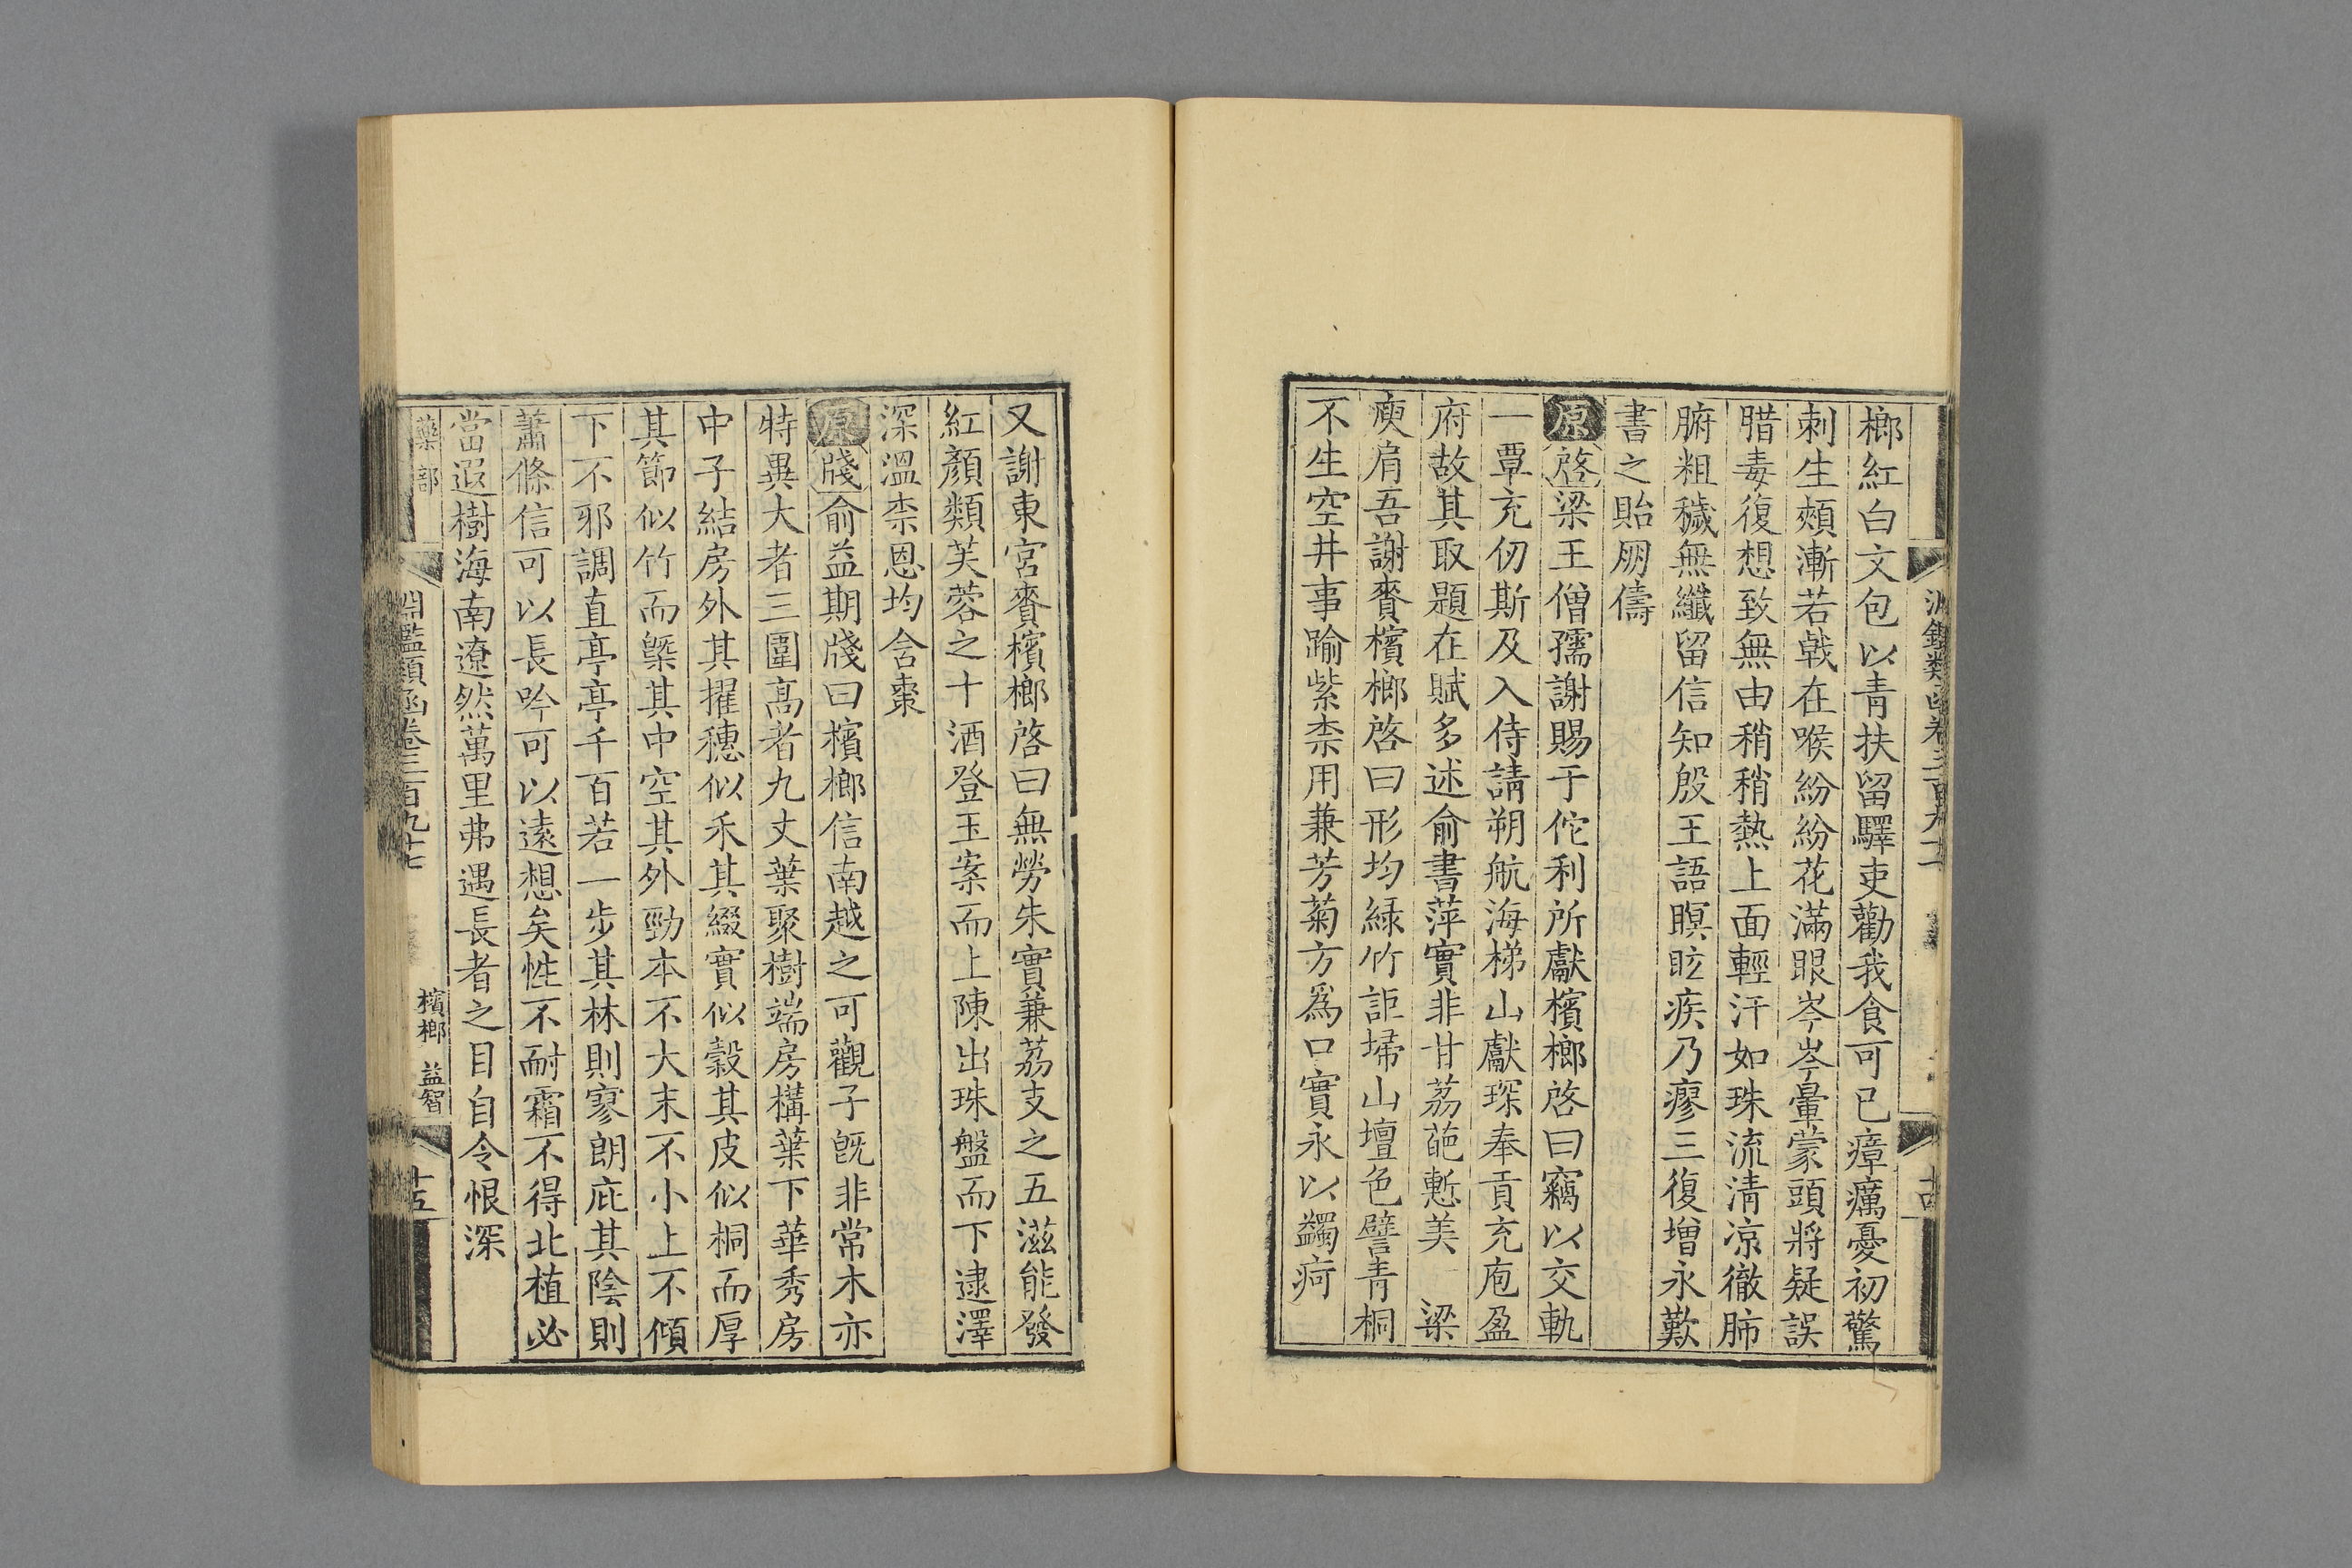 榔紅白文包以青扶留驛吏勸我食可已瘴癘憂初驚
刺生頰漸若戟在喉紛紛花滿眼岑岑暈蒙頭將疑誤
腊毒復想致無由稍稍熱上面輕汗如珠流清凉徹肺
腑粗穢無纖留信知殷王語瞑眩疾乃瘳三復增永歎
書之貽朋儔
原啓梁王僧孺謝賜于佗利所獻檳榔啓曰竊以交軌
一覃充仞斯及入侍請朔航海梯山獻琛奉貢充庖盈
府故其取題在賦多述俞書萍實非甘荔葩慙美　梁
庾肩吾謝賚檳榔啓曰形均緑竹詎埽山壇色譬青桐
不生空井事踰紫柰用兼芳菊方爲口實永以蠲疴
淵鑑類函卷三百九十七
十四
又謝東宮賚檳榔啓曰無勞朱實兼荔支之五滋能發
紅顏類芙蓉之十酒登玉案而上陳出珠盤而下逮澤
深溫柰恩均含棗
原牋俞益期牋曰檳榔信南越之可觀子旣非常木亦
特異大者三圍高者九丈葉聚樹端房構葉下華秀房
中子結房外其擢穗似禾其綴實似穀其皮似桐而厚
其節似竹而槩其中空其外勁本不大末不小上不傾
下不邪調直亭亭千百若一步其林則寥朗庇其陰則
蕭條信可以長吟可以遠想矣性不耐霜不得北植必
當遐樹海南遼然萬里弗遇長者之目自令恨深
藥部
淵鑑類函卷三百九十七
檳榔　益智
十五